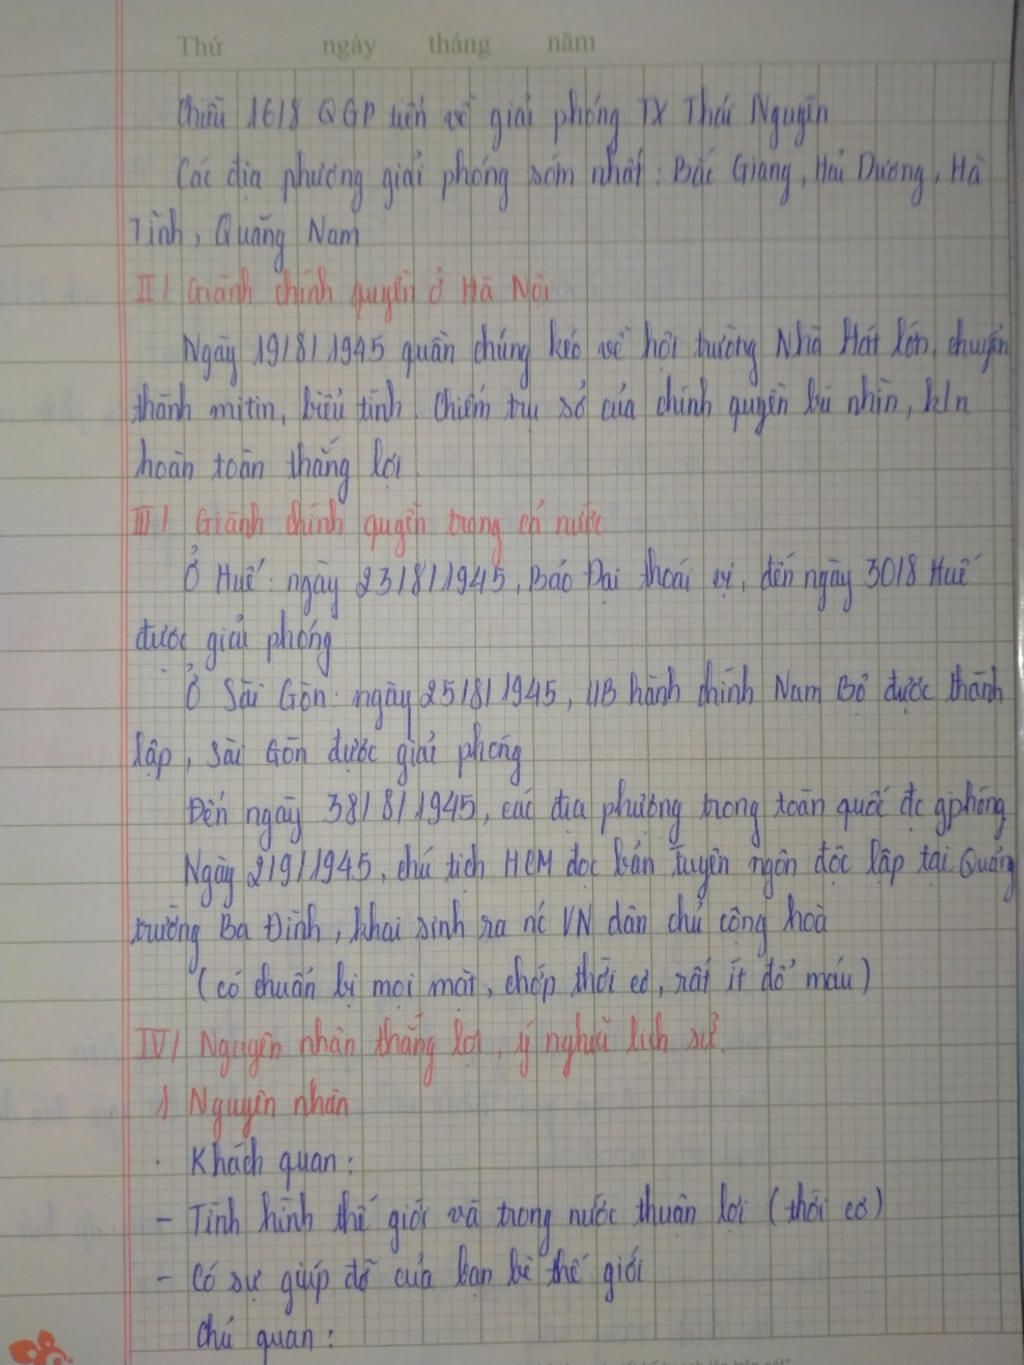 Thứ ngày tháng năm
Chiều 16/8 QGP tiến về giải phóng TX Thái Nguyên
Các địa phương giải phóng sớm nhất: Bắc Giang, Hải Dương, Hà
Tĩnh, Quảng Nam
II/ Giành chính quyền ở Hà Nội
Ngày 19/8/1945 quần chúng kéo về hội trường Nhà Hát lớn, chuyển
thành mitin, biểu tình. Chiếm trụ sở của chính quyền bù nhìn, k/n
hoàn toàn thắng lợi.
III/ Giành chính quyền trong cả nước
Ở Huế: ngày 23/8/1945, Bảo Đại thoái vị, đến ngày 30/8 Huế
được giải phóng
Ở Sài Gòn: ngày 25/8/1945, UB hành chính Nam Bộ được thành
lập, Sài Gòn được giải phóng
Đến ngày 38/8/1945, các địa phương trong toàn quốc đc gphóng
Ngày 2/9/1945, chủ tịch HCM đọc bản tuyên ngôn độc lập tại Quảng
trường Ba Đình, khai sinh ra nc VN dân chủ cộng hoà
(có chuẩn bị mọi mặt, chớp thời cơ, rất ít đổ máu)
IV/ Nguyên nhân thắng lợi, ý nghĩa lịch sử.
1 Nguyên nhân
· Khách quan:
- Tình hình thế giới và trong nước thuận lợi (thời cơ)
- Có sự giúp đỡ của bạn bè thế giới
Chủ quan: